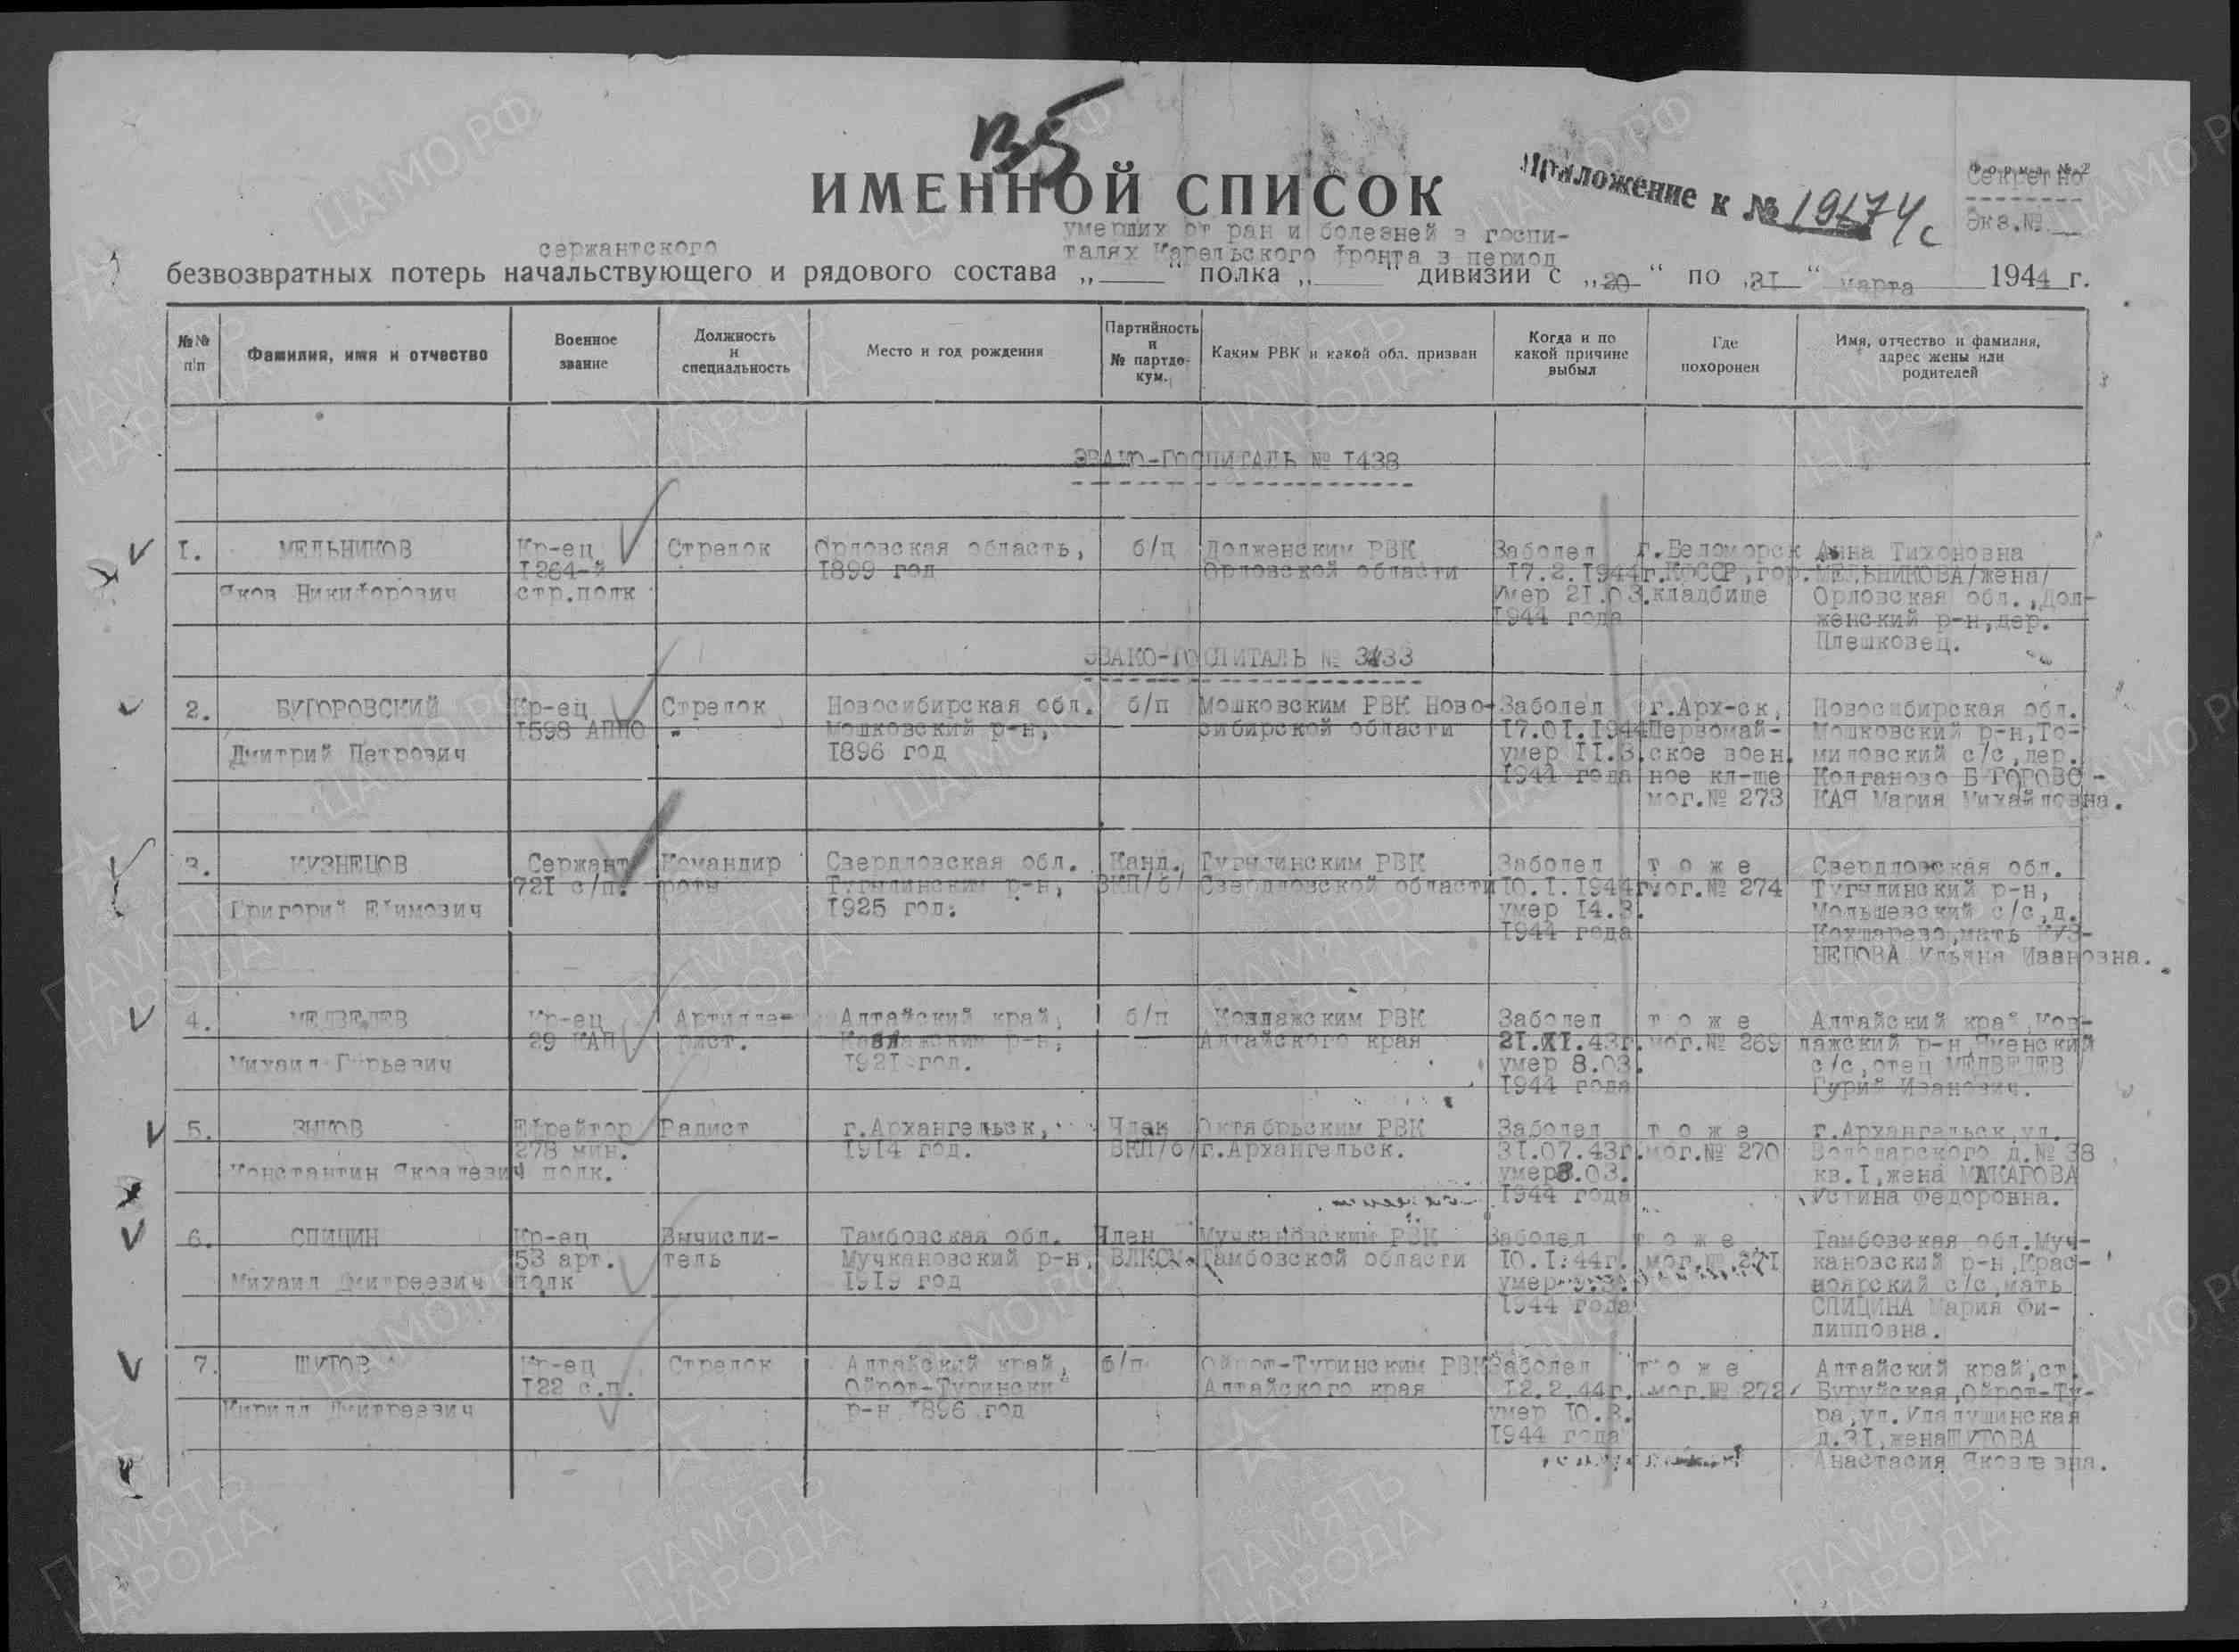 135
ИМЕННОЙ СПИСОК
Приложение к № 19674с
Форма № 2
Секретно
Экз.№
умерших от ран и болезней в госпи-
талях Карельского фронта в период
сержантского
безвозвратных потерь начальствующего и рядового состава „ “ полка „ “ дивизии с „20“ по „31“ марта 1944 г.
№№ п/п
Фамилия, имя и отчество
Военное звание
Должность и специальность
Место и год рождения
Партийность и № партдо-кум.
Каким РВК и какой обл. призван
Когда и по какой причине выбыл
Где похоронен
Имя, отчество и фамилия, адрес жены или родителей
ЭВАКО-ГОСПИТАЛЬ № 1438
1. МЕЛЬНИКОВ Кр-ец Стрелок Орловская область, б/п Долженским РВК Заболел г.Беломорск Анна Тихоновна
1264-й 1899 год Орловской области 17.2.1944г. КФССР, гор. МЕЛЬНИКОВА/жена/
Яков Никифорович стр.полк умер 21.03. кладбище Орловская обл.,Дол-
1944 года женский р-н,дер.
Плешковец.
ЭВАКО-ГОСПИТАЛЬ № 3133
2. БУГОРОВСКИЙ Кр-ец Стрелок Новосибирская обл. б/п Мошковским РВК Ново- Заболел г.Арх-ск, Новосибирская обл.
1598 АППО Мошковский р-н, сибирской области 17.01.1944 Первомай- Мошковский р-н,То-
Дмитрий Петрович 1896 год умер 11.3. ское воен. миловский с/с,дер.
1944 года ное кл-ще Колганово БУГОРОВС-
мог.№ 273 КАЯ Мария Михайловна.
3. КУЗНЕЦОВ Сержант Командир Свердловская обл. Канд. Тугулинским РВК Заболел т о ж е Свердловская обл.
721 с/п. роты Тугулинским р-н, ВКП/б/ Свердловской области 10.1.1944г. мог.№ 274 Тугулинский р-н,
Григорий Ефимович 1925 год. умер 14.3. Мальшевский с/с,д.
1944 года Кохтарево,мать КУЗ-
НЕЦОВА Ульяна Ивановна.
4. МЕДВЕДЕВ Кр-ец Артилле- Алтайский край, б/п РВК Заболел т о ж е Алтайский край,
29 КАП рист. р-н, Алтайского края 21.XI.43г. мог.№ 269 р-н,Яменский
Михаил Гурьевич 1921 год. умер 8.03. с/с,отец МЕДВЕДЕВ
1944 года Гурий Иванович.
5. ЗЫКОВ Ефрейтор Радист г.Архангельск, Член Октябрьским РВК Заболел т о ж е г.Архангельск,ул.
278 мин. 1914 год. ВКП/б/ г.Архангельск. 31.07.43г. мог.№ 270 Володарского д.№ 38
Константин Яковлевич полк. умер 8.03. кв.1,жена МАКАРОВА
1944 года Устина Федоровна.
6. СПИЦИН Кр-ец Вычисли- Тамбовская обл. Член Мучкановским РВК Заболел т о ж е Тамбовская обл.Муч-
53 арт. тель Мучкановский р-н, ВЛКСМ Тамбовской области 10.1.44г. мог.№ 271 кановский р-н,Крас-
Михаил Дмитреевич полк 1919 год умер 9.3. ноярский с/с,мать
1944 года СПИЦИНА Мария Фи-
липповна.
7. ШУТОВ Кр-ец Стрелок Алтайский край, б/п Ойрот-Туринским РВК Заболел т о ж е Алтайский край,ст.
122 с.п. Ойрот-Турински Алтайского края 12.2.44г. мог.№ 272 Буруйская,Ойрот-Ту-
Кирилл Дмитреевич р-н 1896 год умер 10.3. ра,ул.
1944 года д.31,жена ШУТОВА
Анастасия Яковлевна.